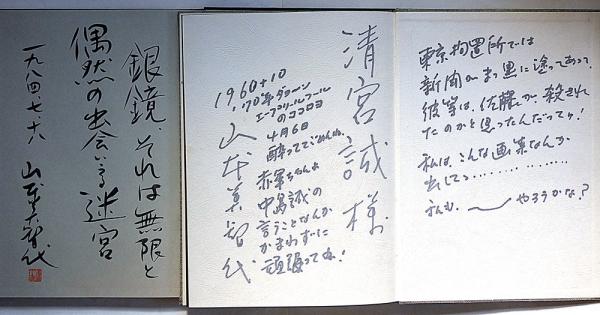 銀鏡、それは無限と
偶然の出会いる迷宮
一九八四、七、六 山本美智代
清宮誠様
1960+10
1970年ダヨーン
エープリルフール
のココロヨ
4月6日
酔っててごめんね、
赤軍ちゃんよ
中島誠の
言うことなんか
かまわずに
頑張ってね!
山本美智代
東京拘置所では
新聞がまっ黒に塗ってあって、
彼等は、佐藤が殺され
たのかと思ったんだってサ!
私は、こんな画集なんか
出してる...............
やろうかな?